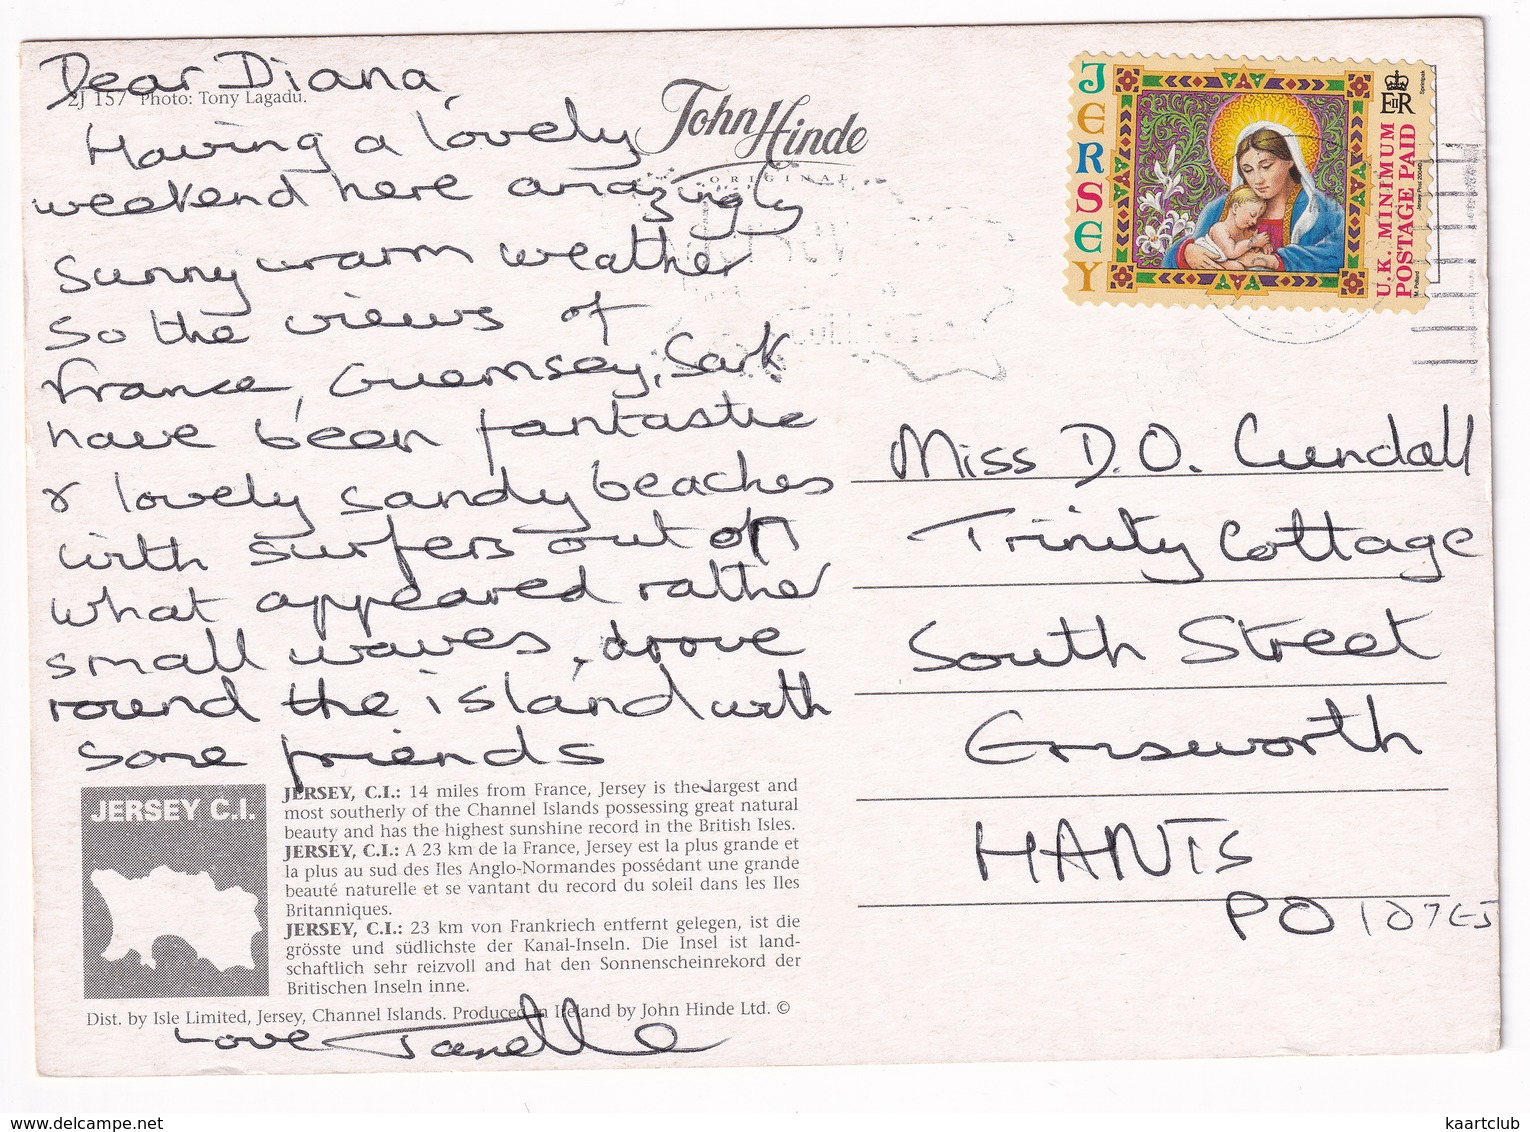 Dear Diana,
2J 157 Photo: Tony Lagadu.
Having a lovely
weekend here amazingly
sunny warm weather
so the views of
France, Guernsey, Sark
have been fantastic
& lovely sandy beaches
with surfers out on
what appeared rather
small waves, drove
round the island with
some friends
Love Janelle
John Hinde
ORIGINAL
JERSEY
U.K. MINIMUM
POSTAGE PAID
EIIR
Sprintpak
Jersey Post 2004
M. Pollard
Miss D.O. Cundall
Trinity Cottage
South Street
Emsworth
HANTS
PO10 7EJ
JERSEY C.I.
JERSEY, C.I.: 14 miles from France, Jersey is the largest and
most southerly of the Channel Islands possessing great natural
beauty and has the highest sunshine record in the British Isles.
JERSEY, C.I.: A 23 km de la France, Jersey est la plus grande et
la plus au sud des Iles Anglo-Normandes possédant une grande
beauté naturelle et se vantant du record du soleil dans les Iles
Britanniques.
JERSEY, C.I.: 23 km von Frankriech entfernt gelegen, ist die
grösste und südlichste der Kanal-Inseln. Die Insel ist land-
schaftlich sehr reizvoll and hat den Sonnenscheinrekord der
Britischen Inseln inne.
Dist. by Isle Limited, Jersey, Channel Islands. Produced in Ireland by John Hinde Ltd. ©
www.delcampe.net
kaartclub